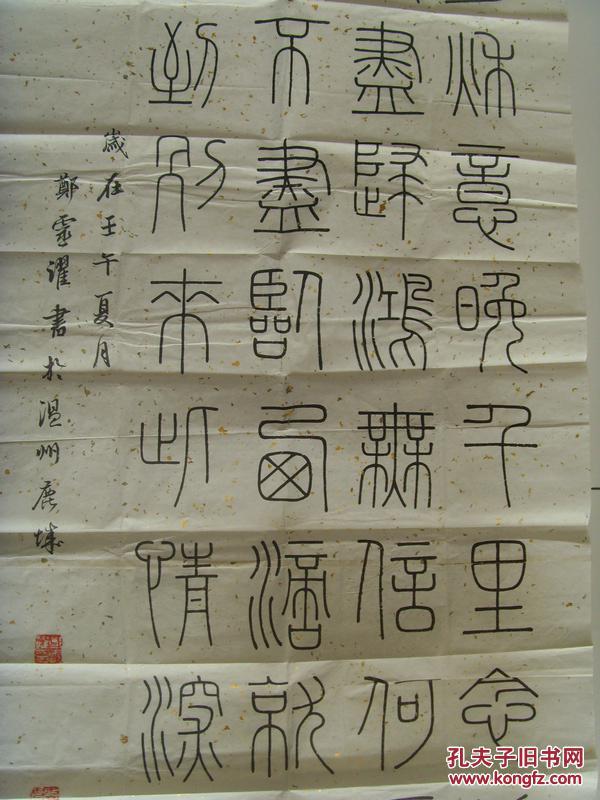 秋意晚千里念
盡歸鴻無信何
不盡臨窗滴就
到別來此情深
歲在壬午夏月
鄭靈濯書於溫州鹿城
孔夫子旧书网
www.kongfz.com